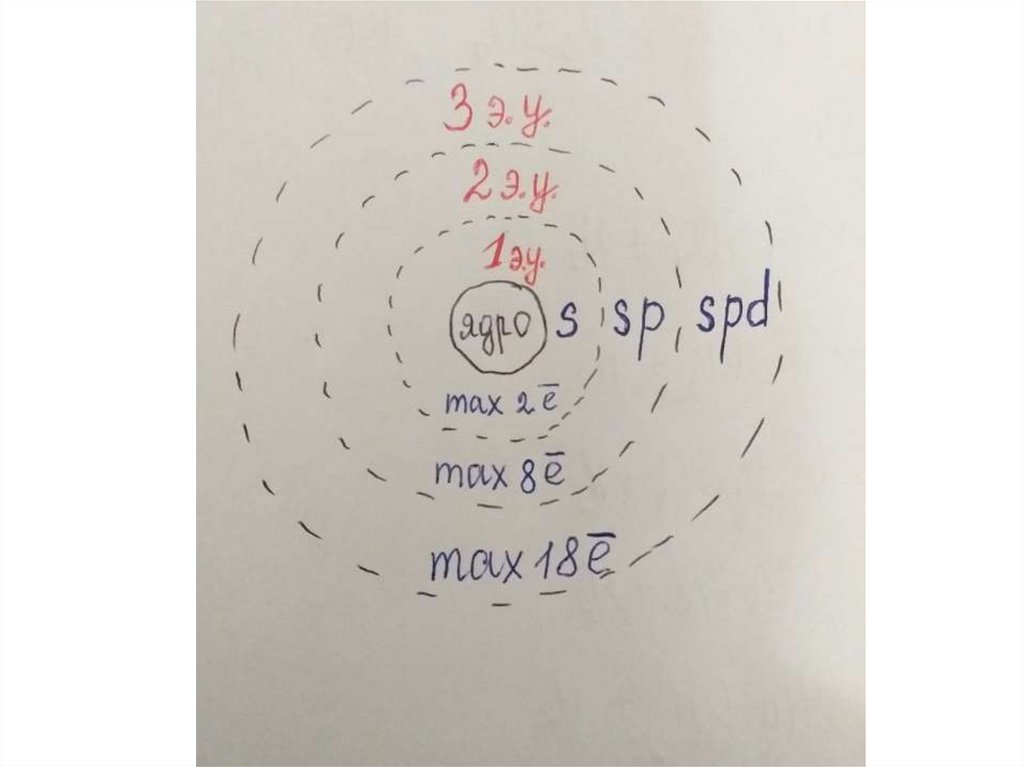 3 э.у.
2 э.у.
1 э.у.
ядро s sp spd
max 2 e̅
max 8 e̅
max 18 e̅